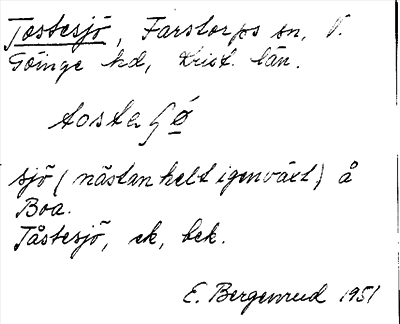 Tostesjö, Farstorps sn, V.
Göinge hd, Krist. län.
tosta ʃø
sjö (nästan helt igenväxt) å
Boa.
Tåstesjö, ek, bek.
E. Bergenrud 1951